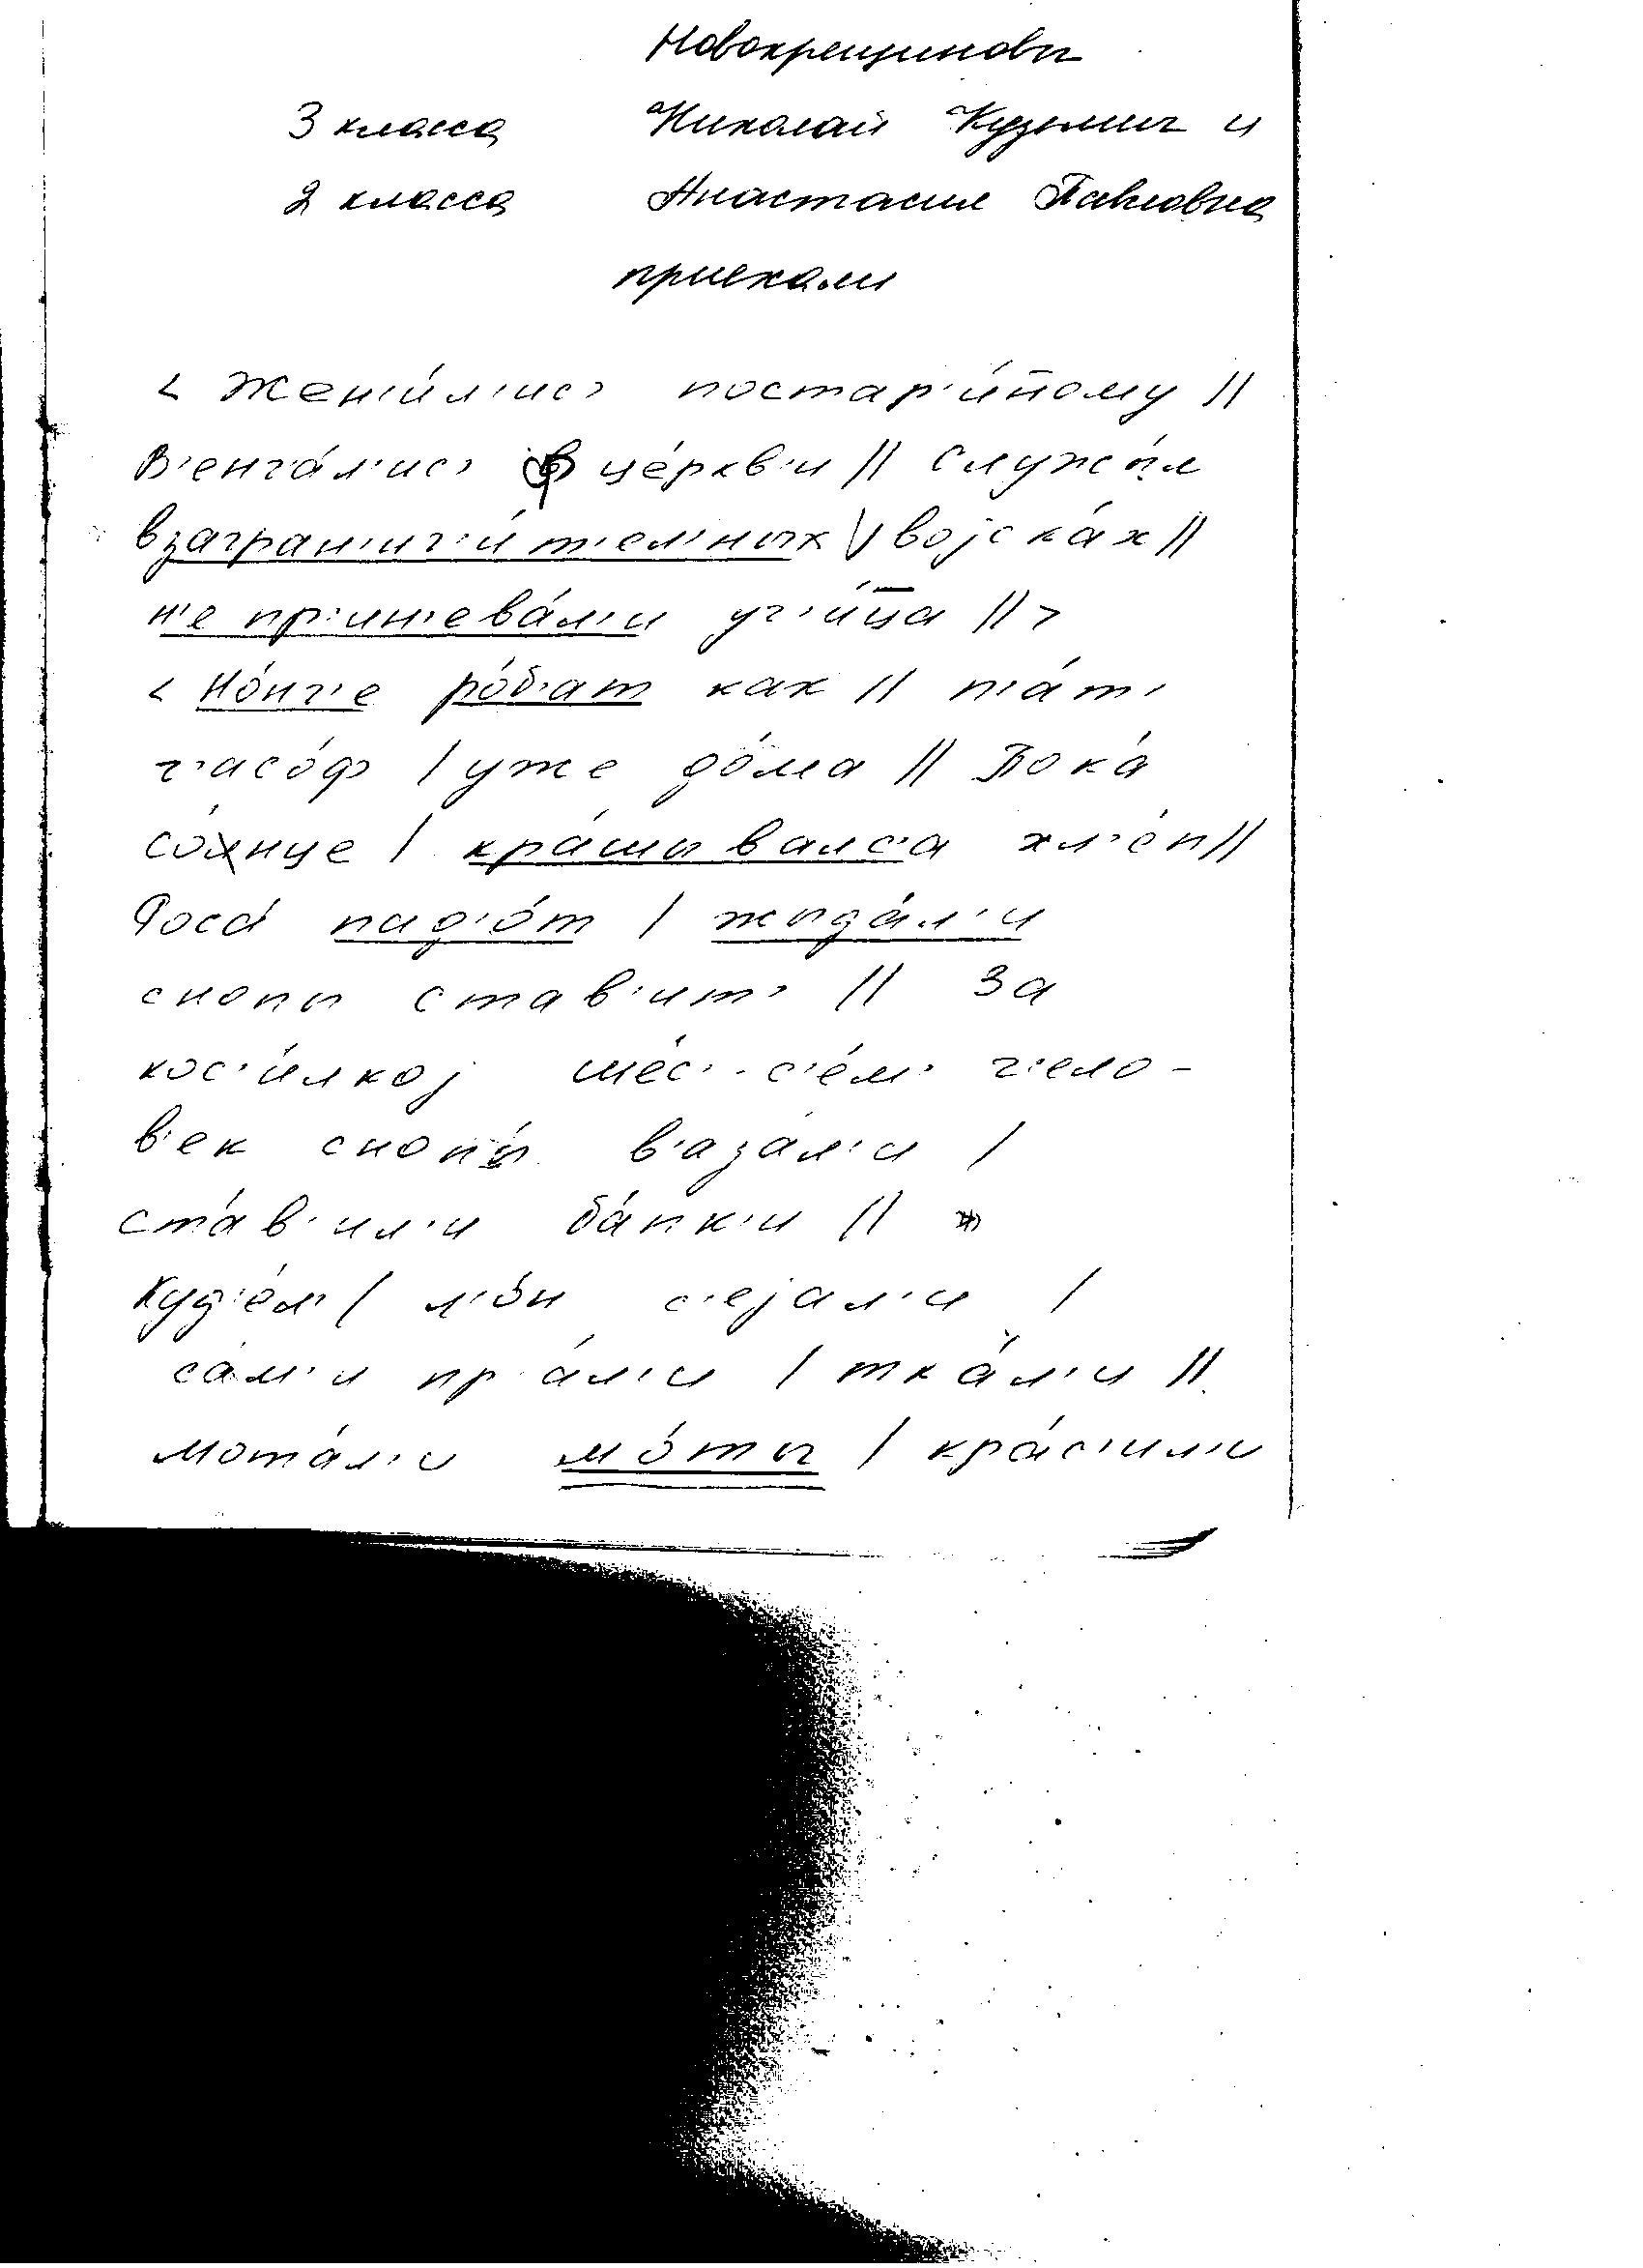 Новокрещиновы
3 класса Николай Кузьмич и
2 класса Анастасия Павловна
приехали
< Жен'и́л'ис' постар'и́нному //
В'енч'а́л'ис' в це́ркв'и // Служы́л
взагран'ич'и́т'ел'ных \/ војска́х //
н'е пр'ин'ева́л'и уч'и́ц̄а // >
< Но́нч'е ро́б'ат как // п'а́т'
ч'асо́ф / уже до́ма // Пока́
со́лнце / кра́шывалс'а хл'е́п //
Роса́ пад'о́т / жыда́л'и
снопы став'ит' // За
кос'и́лкој шес'-с'е́м' ч'ело-
в'ек снопы́ в'азал'и /
ста́в'ил'и ба́пк'и //
Куд'е́л' / л'о́н с'ејал'и /
са́м'и пр'а́л'и / тка́л'и //
мота́л'и мо́ты / кра́с'ил'и